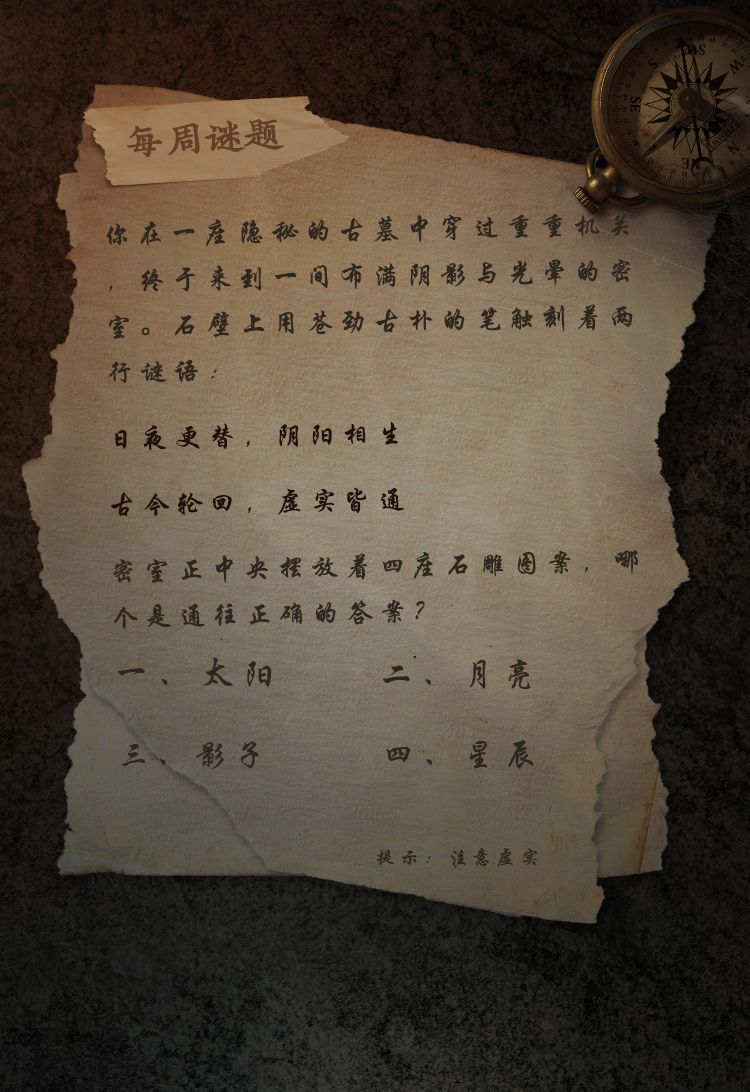 每周谜题
你在一座隐秘的古墓中穿过重重机关
，终于来到一间布满阴影与光晕的密
室。石壁上用苍劲古朴的笔触刻着两
行谜语：
日夜更替，阴阳相生
古今轮回，虚实皆通
密室正中央摆放着四座石雕图案，哪
个是通往正确的答案？
一、太阳
二、月亮
三、影子
四、星辰
提示：注意虚实
SW
W
S
SE
N
NE